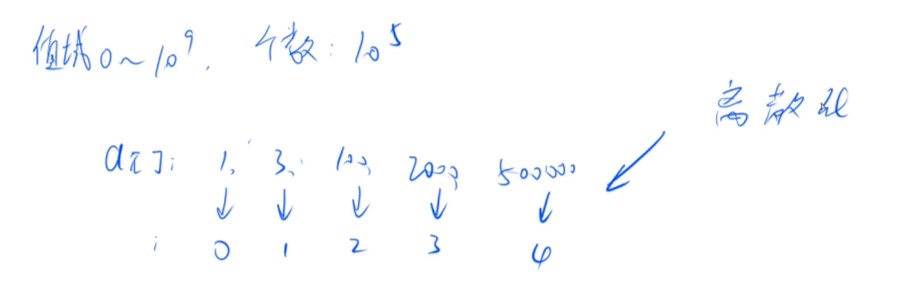 值域0~10⁹. 个数: 10⁵
离散化
a[]: 1, 3, 100, 2000, 500000
↓ ↓ ↓ ↓ ↓
i 0 1 2 3 4